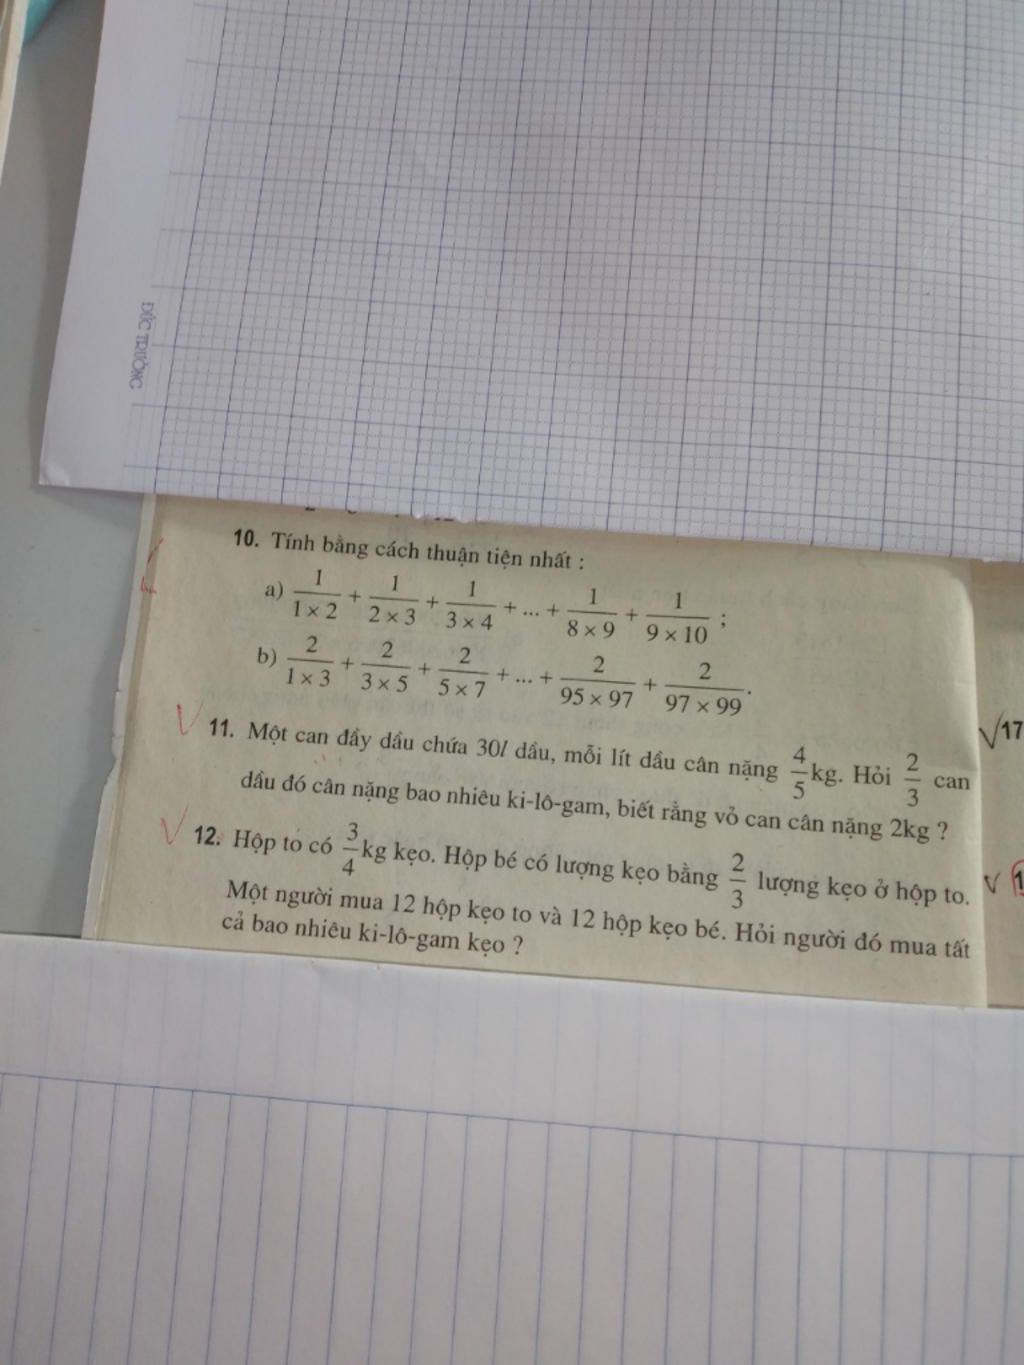 ĐỨC TRƯỜNG
10. Tính bằng cách thuận tiện nhất :
a) 1/(1 × 2) + 1/(2 × 3) + 1/(3 × 4) + ... + 1/(8 × 9) + 1/(9 × 10) ;
b) 2/(1 × 3) + 2/(3 × 5) + 2/(5 × 7) + ... + 2/(95 × 97) + 2/(97 × 99).
11. Một can đầy dầu chứa 30l dầu, mỗi lít dầu cân nặng 4/5 kg. Hỏi 2/3 can
dầu đó cân nặng bao nhiêu ki-lô-gam, biết rằng vỏ can cân nặng 2kg ?
12. Hộp to có 3/4 kg kẹo. Hộp bé có lượng kẹo bằng 2/3 lượng kẹo ở hộp to.
Một người mua 12 hộp kẹo to và 12 hộp kẹo bé. Hỏi người đó mua tất
cả bao nhiêu ki-lô-gam kẹo ?
17